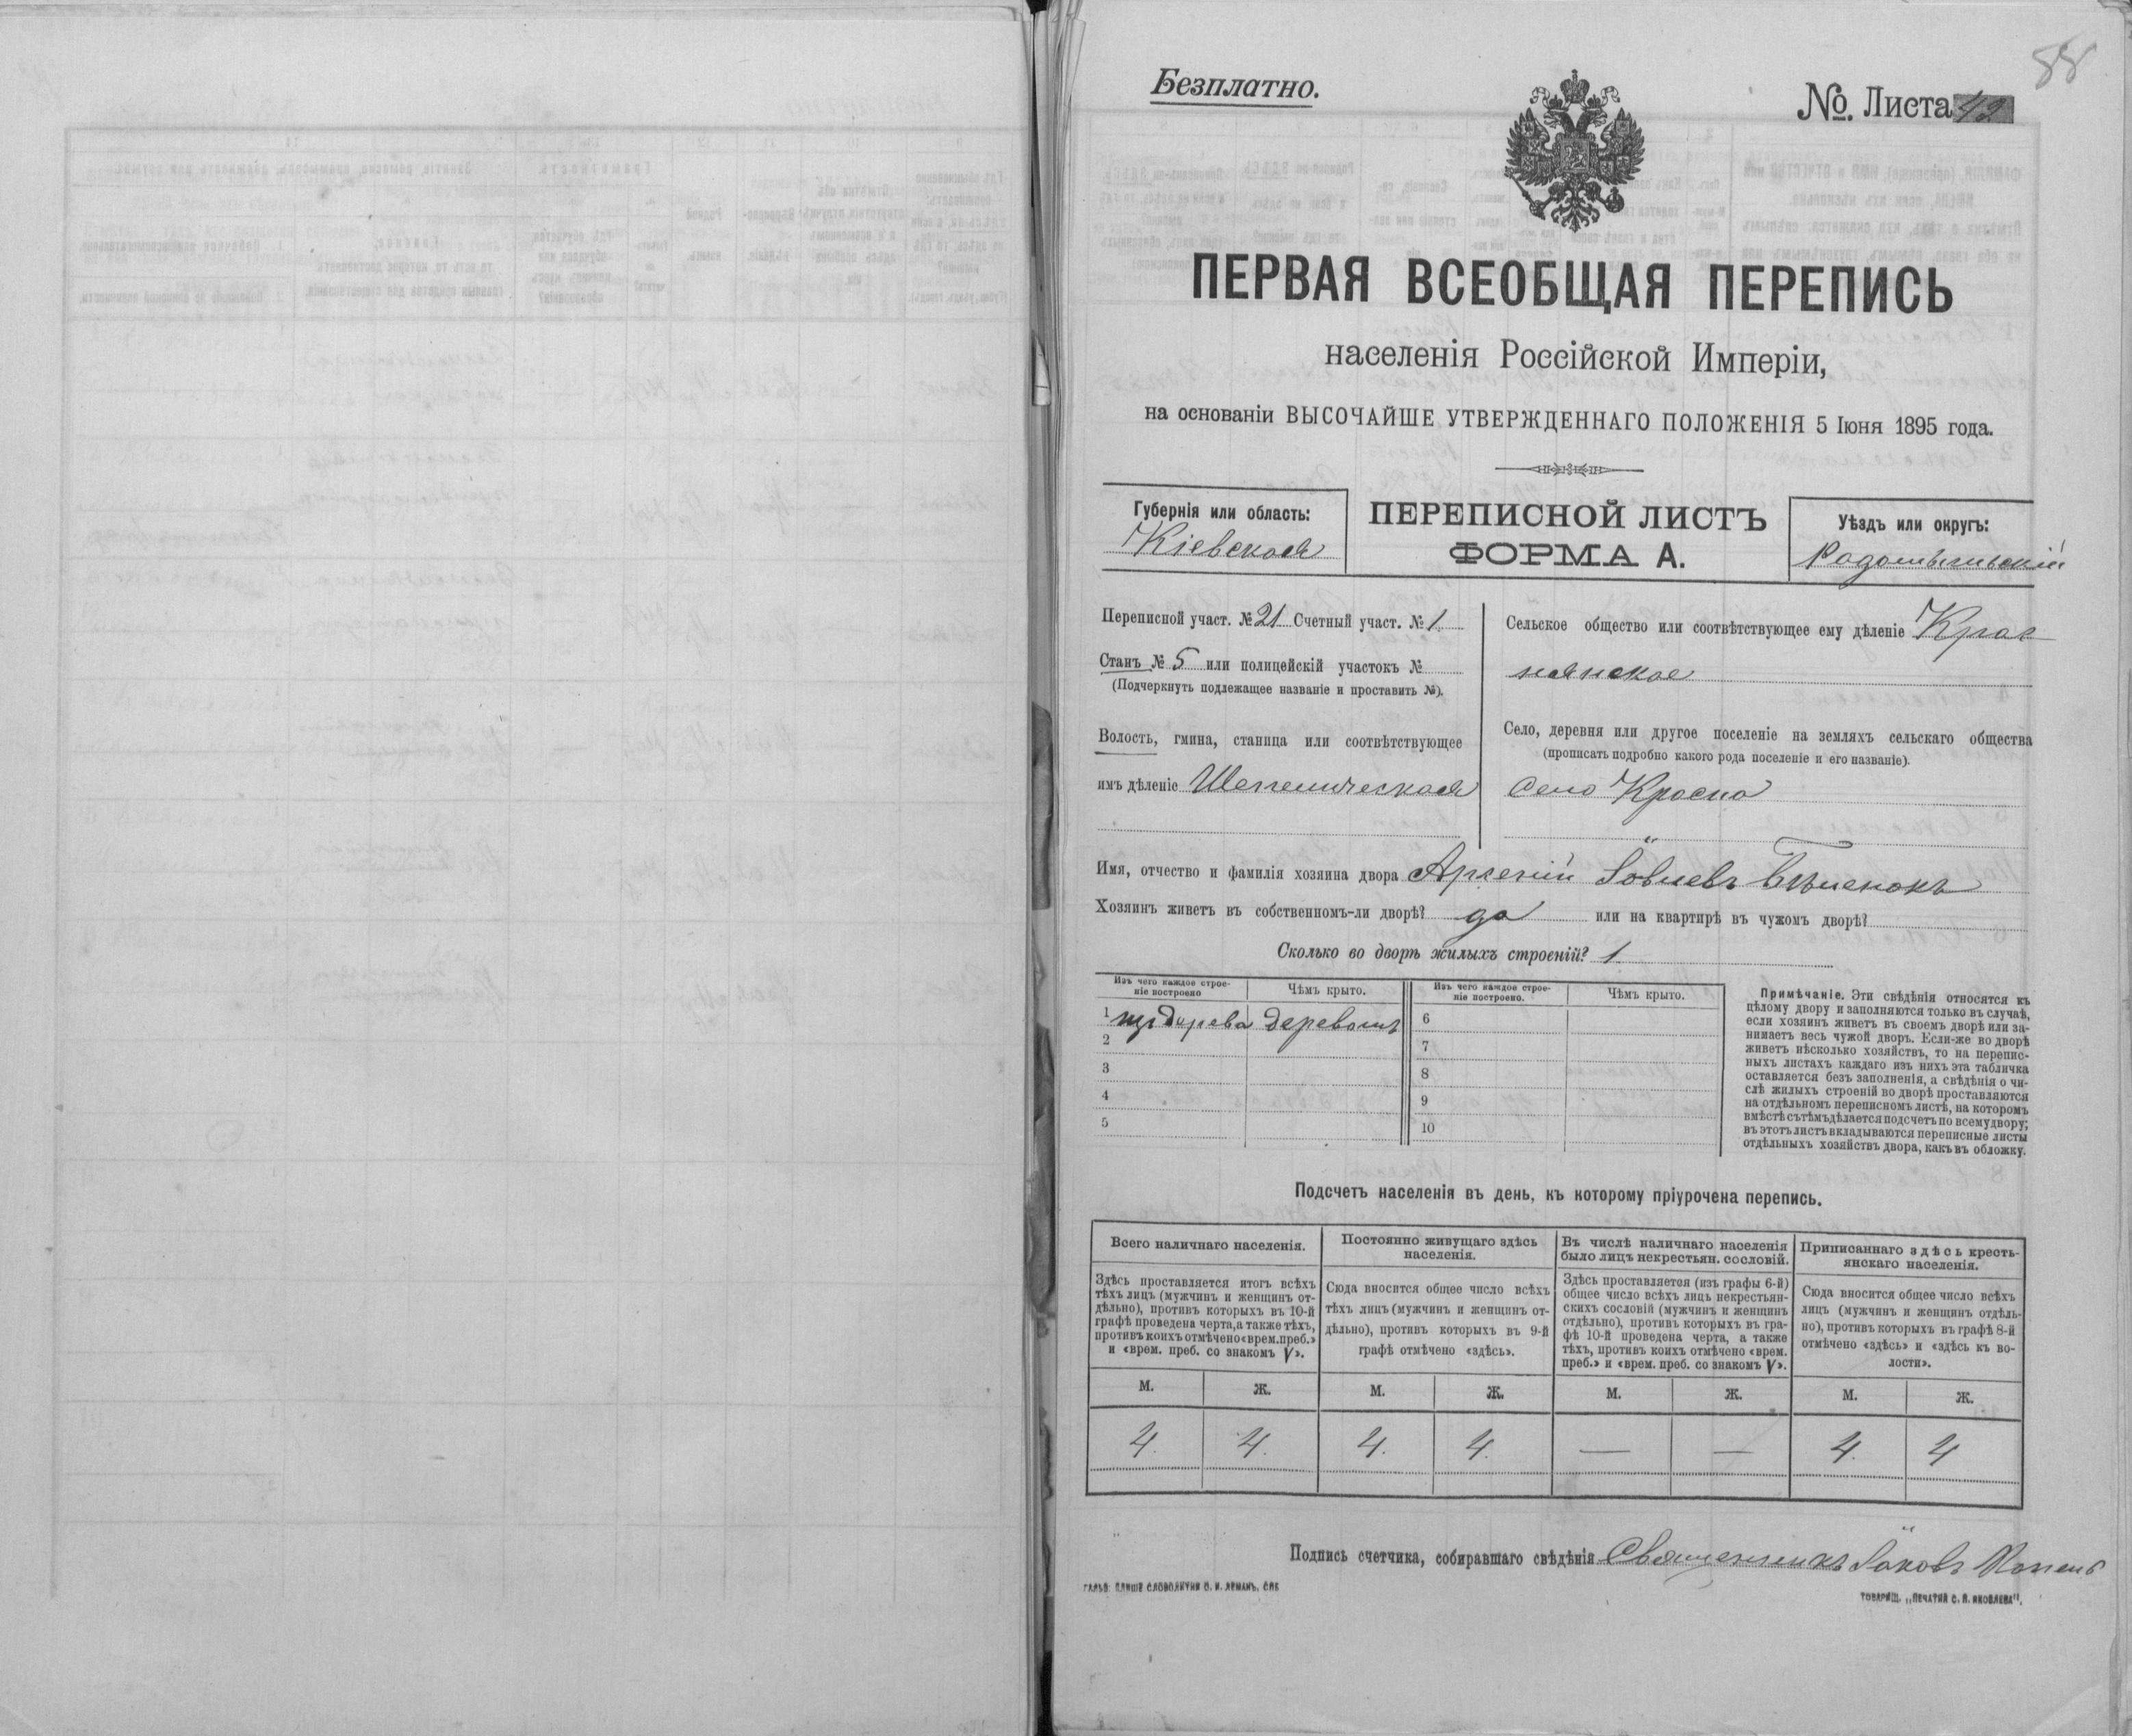 88
Безплатно.
№. Листа 42
ПЕРВАЯ ВСЕОБЩАЯ ПЕРЕПИСЬ
населенія Россійской Имперіи,
на основаніи ВЫСОЧАЙШЕ УТВЕРЖДЕННАГО ПОЛОЖЕНІЯ 5 Іюня 1895 года.
Губернія или область:
Кіевская
ПЕРЕПИСНОЙ ЛИСТЪ
ФОРМА А.
Уѣздъ или округъ:
Радомысльскій
Переписной участ. № 21 Счетный участ. № 1
Станъ № 5 или полицейскій участокъ №
(Подчеркнуть подлежащее названіе и проставить №).
Волость, гмина, станица или соотвѣтствующее
имъ дѣленіе Шепелическая
Сельское общество или соотвѣтствующее ему дѣленіе Крас
нянское
Село, деревня или другое поселеніе на земляхъ сельскаго общества
(прописать подробно какого рода поселеніе и его названіе).
Село Красно
Имя, отчество и фамилія хозяина двора Арсеній Іовлевъ
Хозяинъ живетъ въ собственномъ-ли дворѣ? да или на квартирѣ въ чужомъ дворѣ?
Сколько во дворѣ жилыхъ строеній? 1
Изъ чего каждое строе-
ніе построено
Чѣмъ крыто.
Изъ чего каждое строе-
ніе построено.
Чѣмъ крыто.
1 изъ дерева деревомъ
2
3
4
5
6
7
8
9
10
Примѣчаніе. Эти свѣдѣнія относятся къ
цѣлому двору и заполняются только въ случаѣ,
если хозяинъ живетъ въ своемъ дворѣ или за-
нимаетъ весь чужой дворъ. Если-же во дворѣ
живетъ нѣсколько хозяйствъ, то на перепис-
ныхъ листахъ каждаго изъ нихъ эта табличка
оставляется безъ заполненія, а свѣдѣнія о чи-
слѣ жилыхъ строеній во дворѣ проставляются
на отдѣльномъ переписномъ листѣ, на которомъ
вмѣстѣ съ тѣмъ дѣлается подсчетъ по всему двору;
въ этотъ листъ вкладываются переписные листы
отдѣльныхъ хозяйствъ двора, какъ въ обложку.
Подсчетъ населенія въ день, къ которому пріурочена перепись.
Всего наличнаго населенія.
Здѣсь проставляется итогъ всѣхъ
тѣхъ лицъ (мужчинъ и женщинъ от-
дѣльно), противъ которыхъ въ 10-й
графѣ проведена черта, а также тѣхъ,
противъ коихъ отмѣчено «врем. преб.»
и «врем. преб. со знакомъ V».
Постоянно живущаго здѣсь
населенія.
Сюда вносится общее число всѣхъ
тѣхъ лицъ (мужчинъ и женщинъ от-
дѣльно), противъ которыхъ въ 9-й
графѣ отмѣчено «здѣсь».
Въ числѣ наличнаго населенія
было лицъ некрестьян. сословій.
Здѣсь проставляется (изъ графы 6-й)
общее число всѣхъ лицъ некрестьян-
скихъ сословій (мужчинъ и женщинъ
отдѣльно), противъ которыхъ въ гра-
фѣ 10-й проведена черта, а также
тѣхъ, противъ коихъ отмѣчено «врем.
преб.» и «врем. преб. со знакомъ V».
Приписаннаго здѣсь кресть-
янскаго населенія.
Сюда вносится общее число всѣхъ
лицъ (мужчинъ и женщинъ отдѣль-
но), противъ которыхъ въ графѣ 8-й
отмѣчено «здѣсь» и «здѣсь къ во-
лости».
М. Ж. М. Ж. М. Ж. М. Ж.
4. 4. 4. 4. — — 4. 4
Подпись счетчика, собиравшаго свѣдѣнія Священникъ Іаковъ
ТОВАРИЩ. „ПЕЧАТНЯ С. П. ЯКОВЛЕВА".